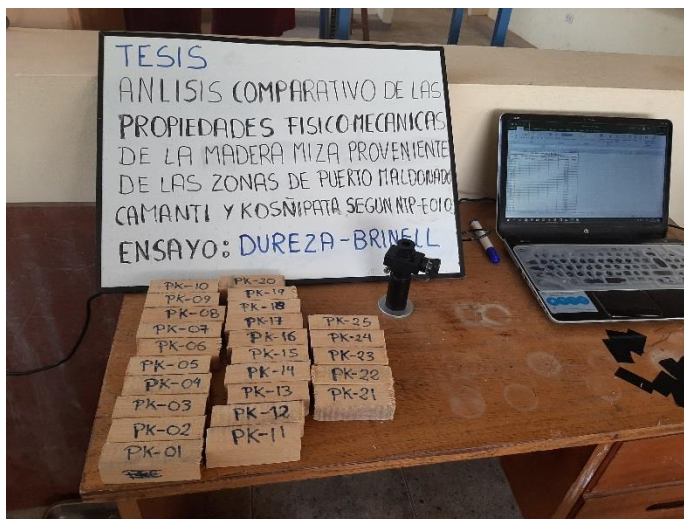 TESIS
ANLISIS COMPARATIVO DE LAS
PROPIEDADES FISICO-MECANICAS
DE LA MADERA MIZA PROVENIENTE
DE LAS ZONAS DE PUERTO MALDONADO
CAMANTI Y KOSÑIPATA SEGUN NTP-E010
ENSAYO: DUREZA-BRINELL
PK-10
PK-09
PK-08
PK-07
PK-06
PK-05
PK-04
PK-03
PK-02
PK-01
PK-20
PK-19
PK-18
PK-17
PK-16
PK-15
PK-14
PK-13
PK-12
PK-11
PK-25
PK-24
PK-23
PK-22
PK-21